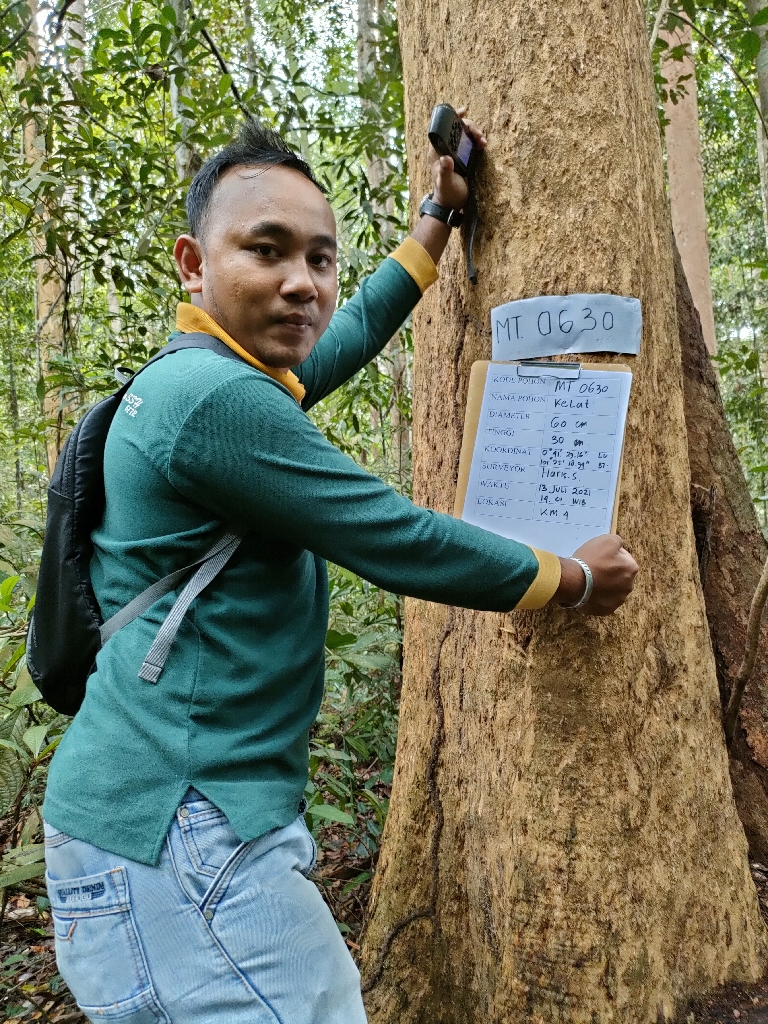 MT. 0630
KODE POHON MT 0630
NAMA POHON Kelat
DIAMETER 60 cm
TINGGI 30 cm
KOORDINAT 0° 41' 29.16" LU
101° 25' 18.59" BT
SURVEYOR Haris.S
WAKTU 13 JULI 2021
14.01 WIB
LOKASI KM 4